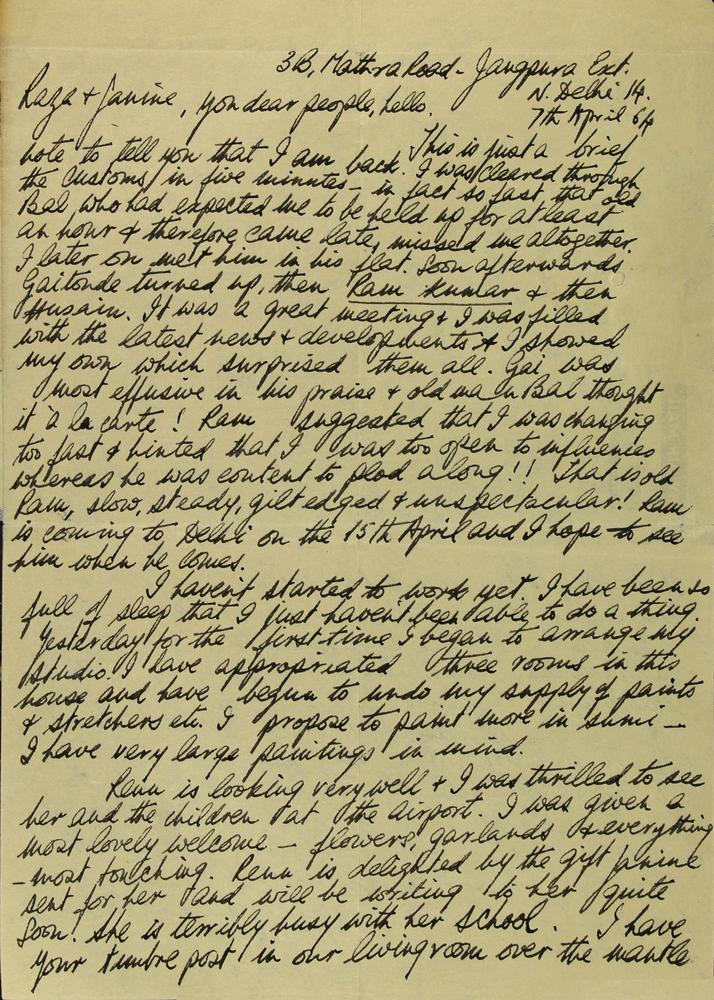 3B, Mathra Road - Jangpura Ext.
N. Delhi 14.
7th April 64
Raza & Janine, you dear people, hello.
This is just a brief
note to tell you that I am back. I was cleared through
the customs in five minutes - in fact so fast that old
Bal, who had expected me to be held up for at least
an hour & therefore came late, missed me altogether.
I later on met him in his flat. Soon afterwards
Gaitonde turned up, then Ram Kumar & then
Husain. It was a great meeting & I was filled
with the latest news & developments & I showed
my own which surprised them all. Gai was
most effusive in his praise & old man Bal thought
it à la carte! Ram suggested that I was changing
too fast & hinted that I was too open to influences
whereas he was content to plod along!! That is old
Ram, slow, steady, gilt edged & unspectacular! Ram
is coming to Delhi on the 15th April and I hope to see
him when he comes.
I haven't started to work yet. I have been so
full of sleep that I just haven't been able to do a thing.
Yesterday for the first time I began to arrange my
studio. I have appropriated three rooms in this
house and have begun to undo my supply of paints
& stretchers etc. I propose to paint more in sumi -
I have very large paintings in mind.
Renu is looking very well & I was thrilled to see
her and the children at the airport. I was given a
most lovely welcome - flowers, garlands & everything
- most touching. Renu is delighted by the gift Janine
sent for her and will be writing to her quite
soon. She is terribly busy with her school. I have
your timbre post in our livingroom over the mantle